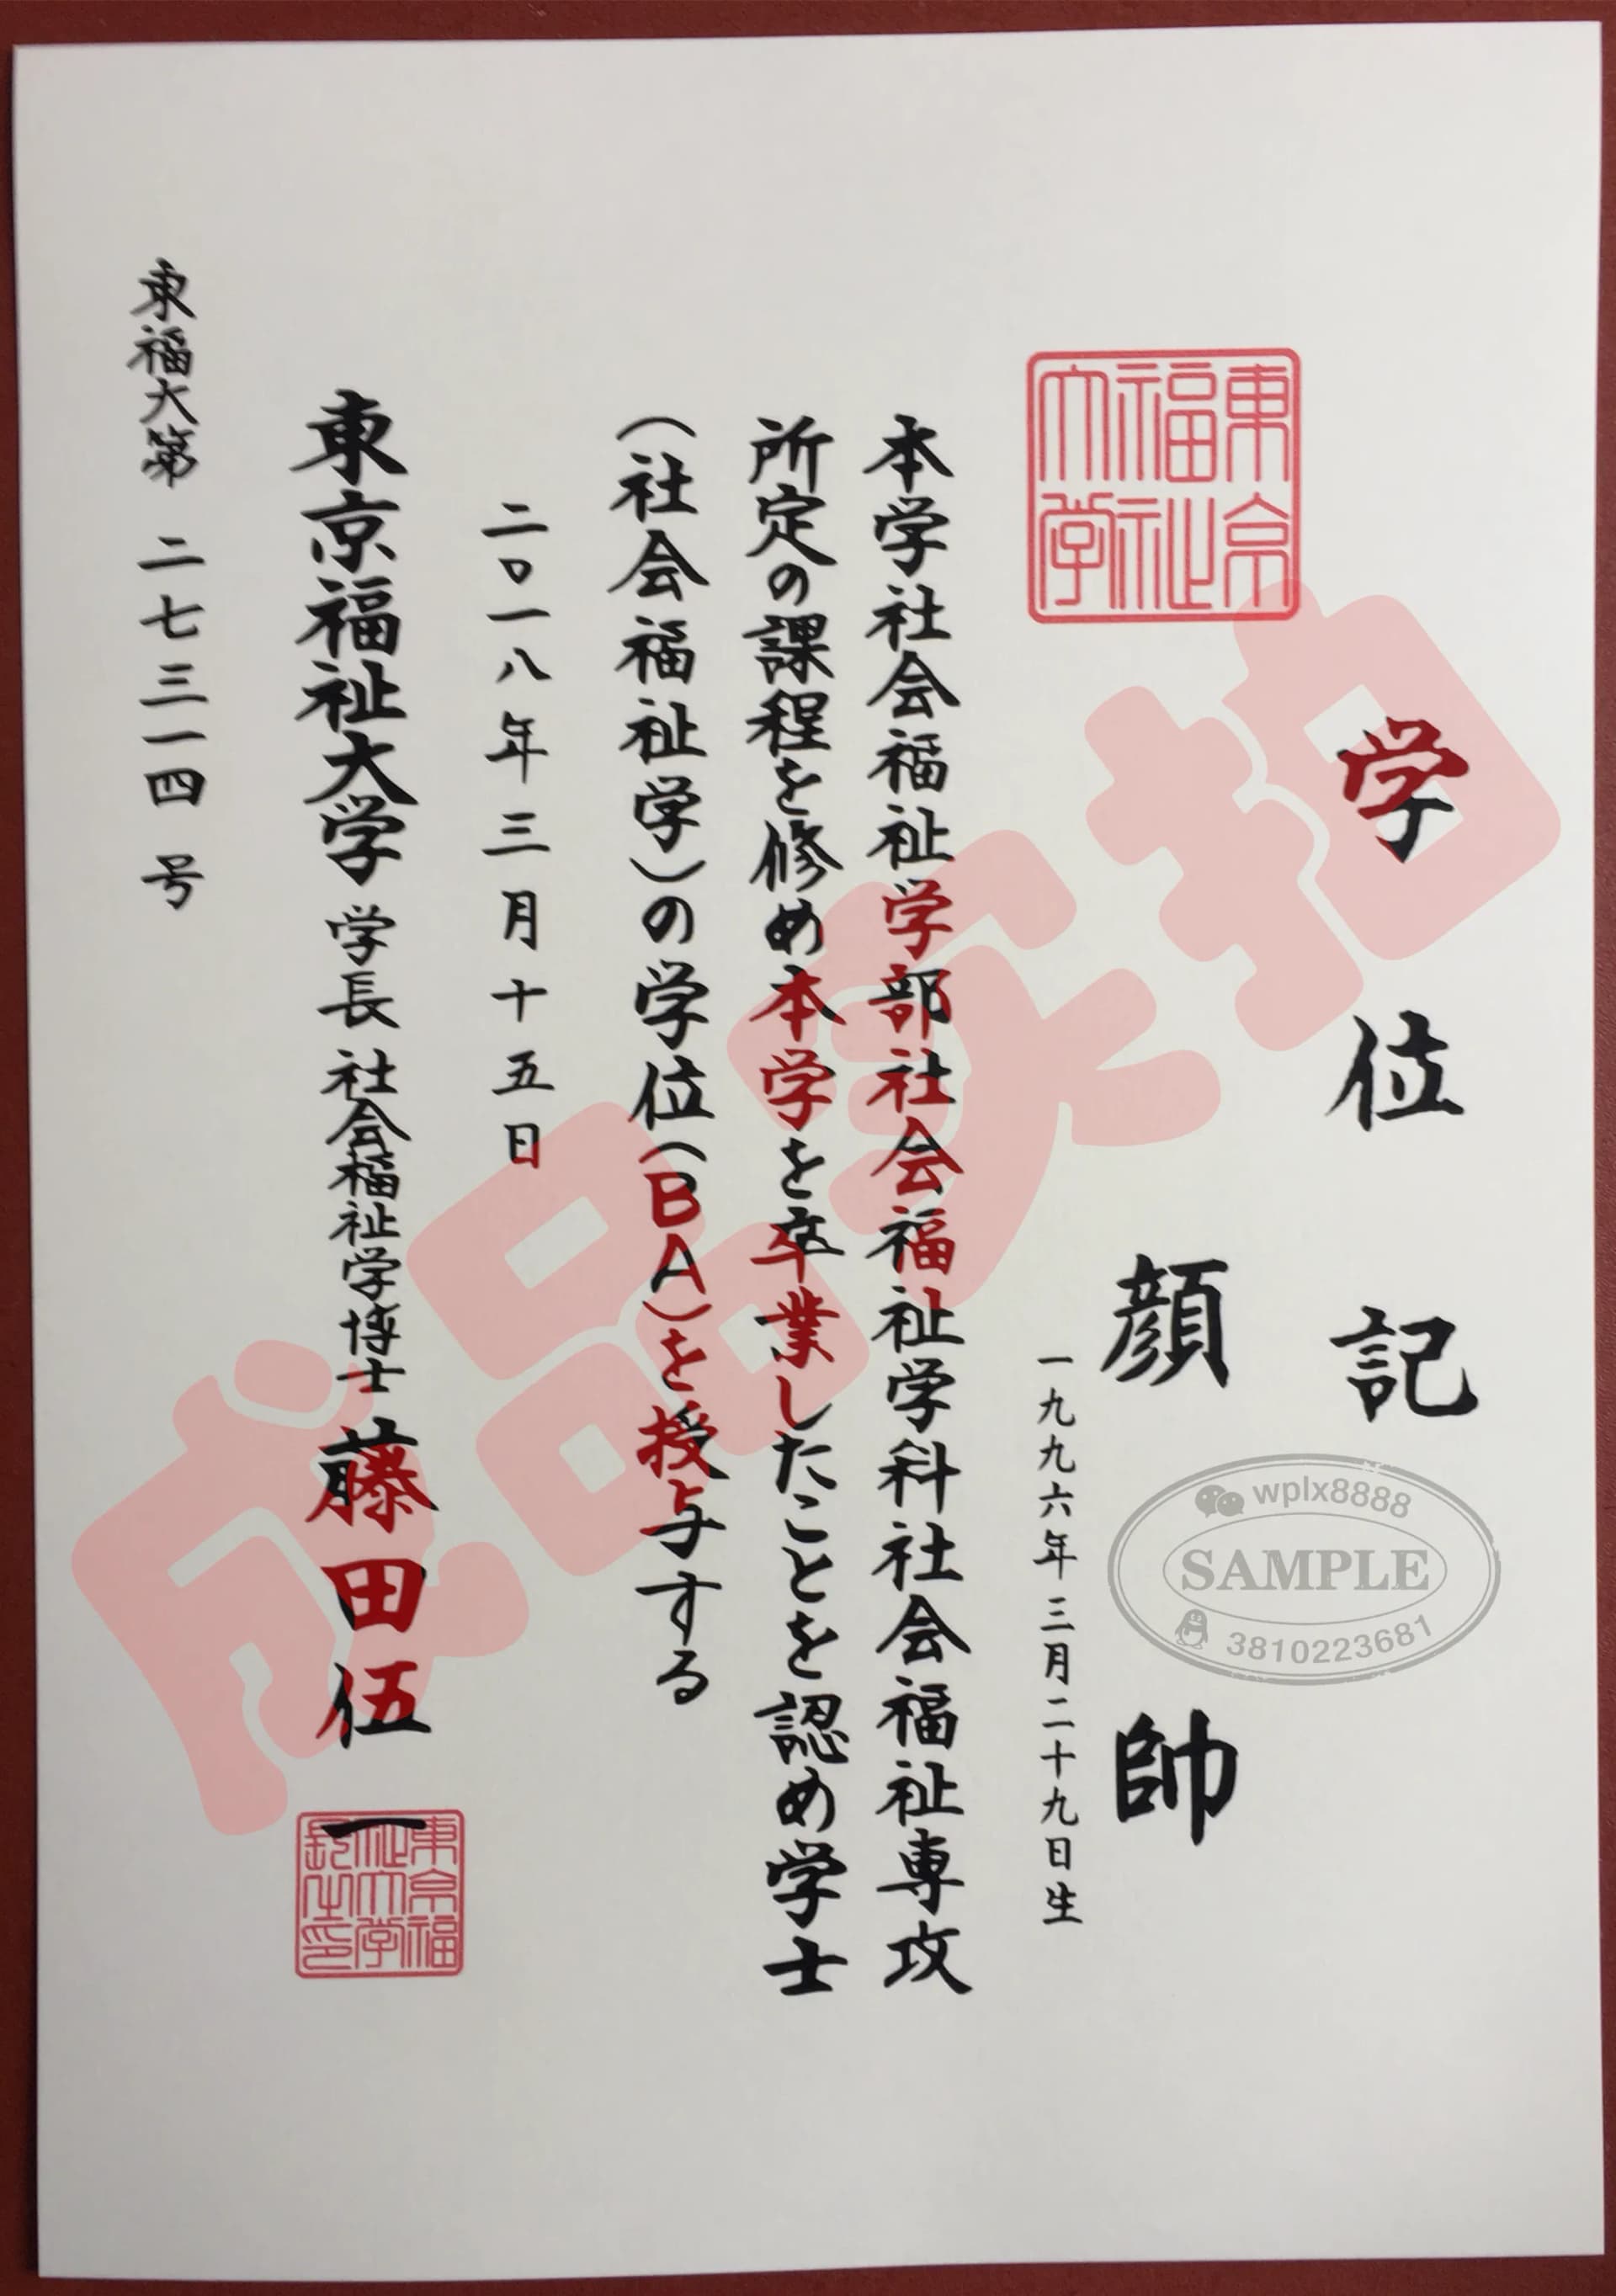 学位記
東京福祉大学
顔帥
一九九六年三月二十九日生
本学社会福祉学部社会福祉学科社会福祉専攻
所定の課程を修め本学を卒業したことを認め学士
(社会福祉学)の学位(BA)を授与する
二〇一八年三月十五日
東京福祉大学 学長 社会福祉学博士 藤田伍一
東京福祉大学長之印
東福大第 二七三一四 号
成品实拍
wplx8888
SAMPLE
3810223681